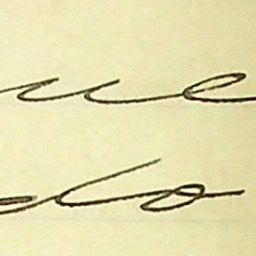 ue
do